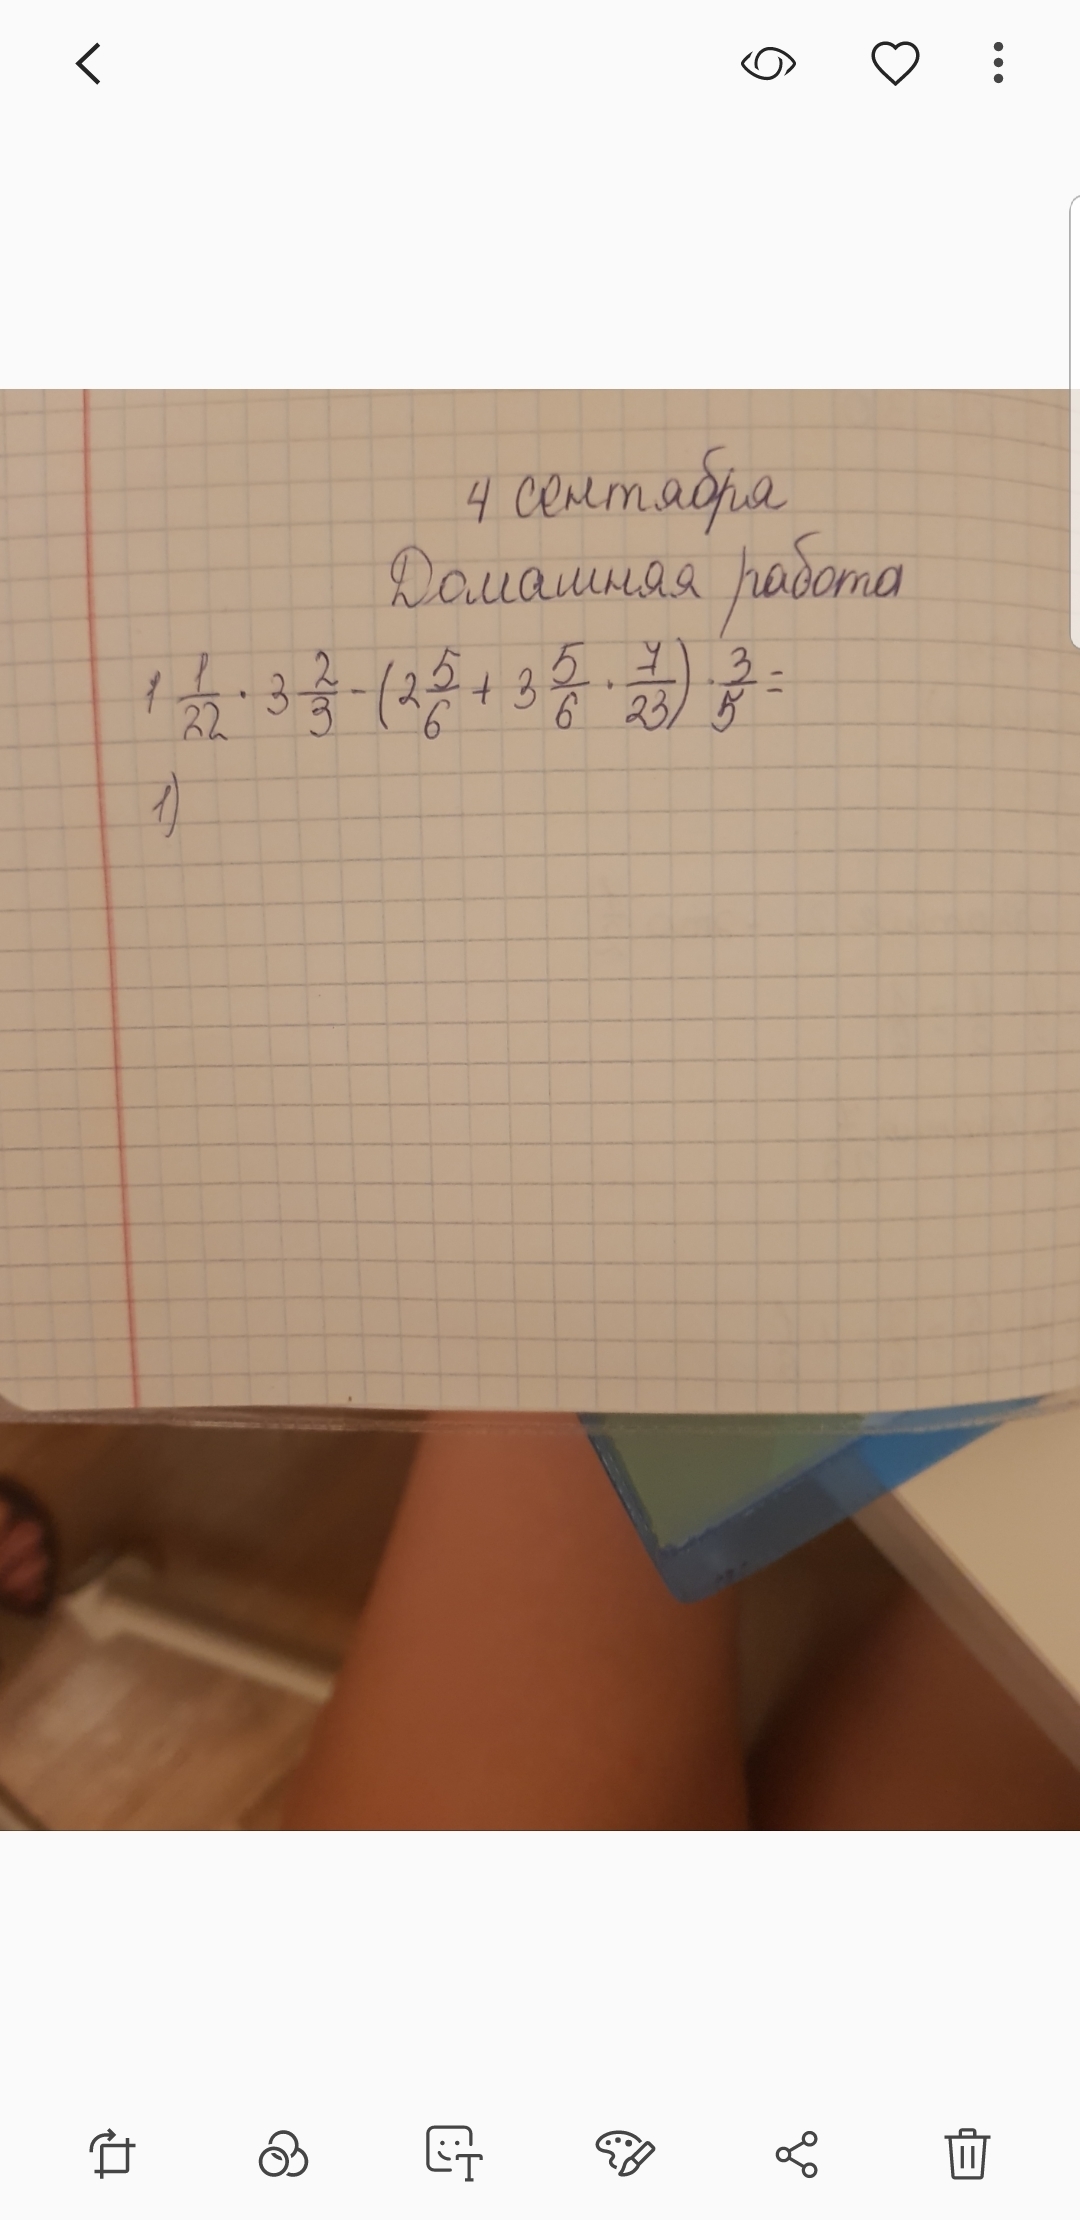 4 сентября
Домашняя работа
1 1/22 · 3 2/3 - (2 5/6 + 3 5/6 · 7/23) · 3/5 =
1)